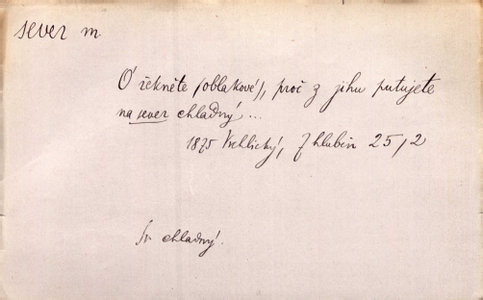 sever m.
Ó řekněte (oblakové), proč z jihu putujete
na sever chladný, ...
1875 Vrchlický, Z hlubin 25/2
Sv. chladný.